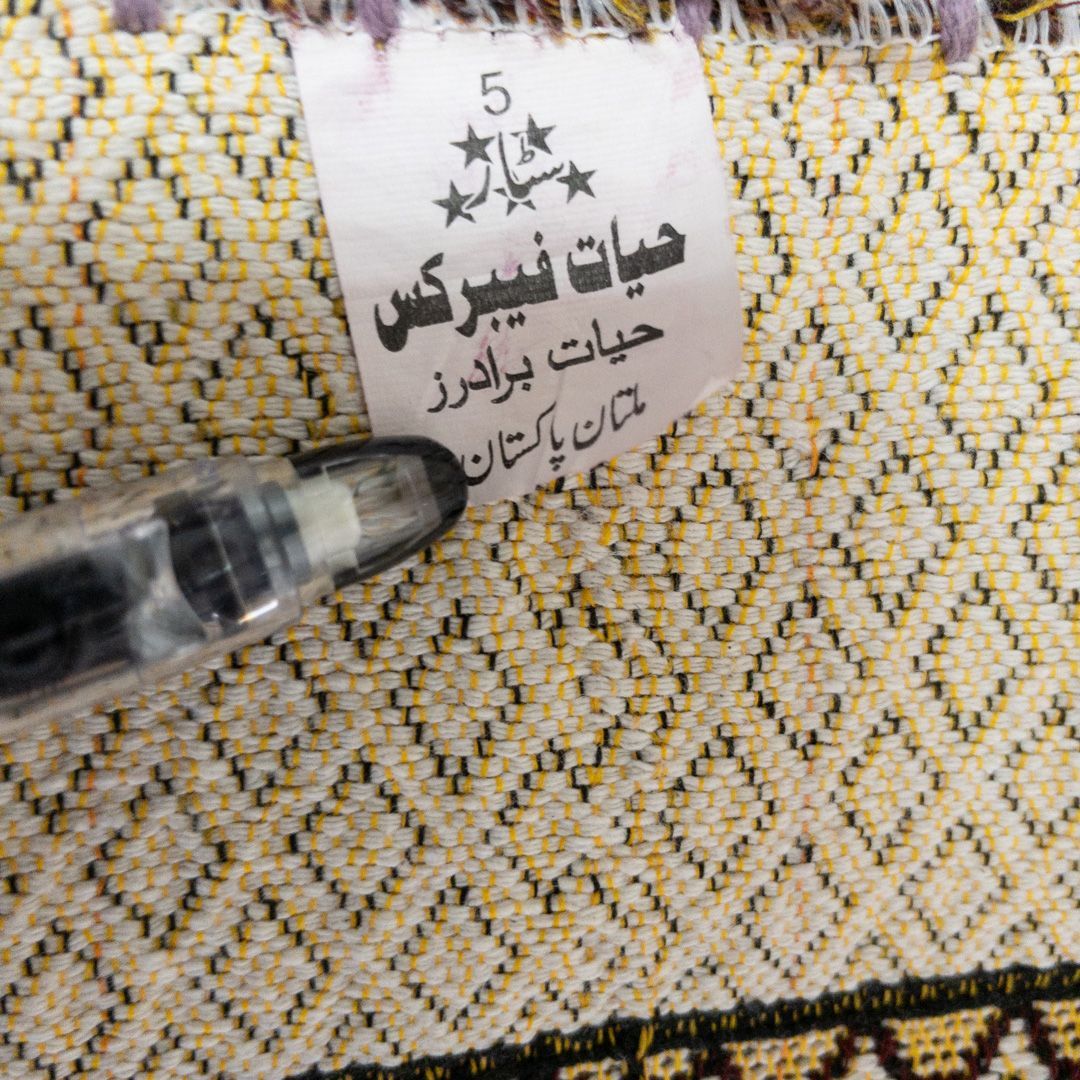 5
سٹار
حیات فیبرکس
حیات برادرز
ملتان پاکستان